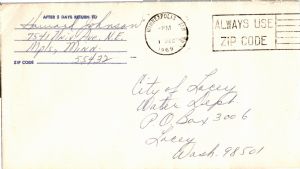 AFTER 5 DAYS RETURN TO
Howard Johnson
7541 Ave. N.E.
Mpls, Minn.
ZIP CODE 55432
MINNEAPOLIS, MINN.
PM
1969
ALWAYS USE
ZIP CODE
City of Lacey
Water Dept
P.O. Box 3006
Lacey
Wash. 98501